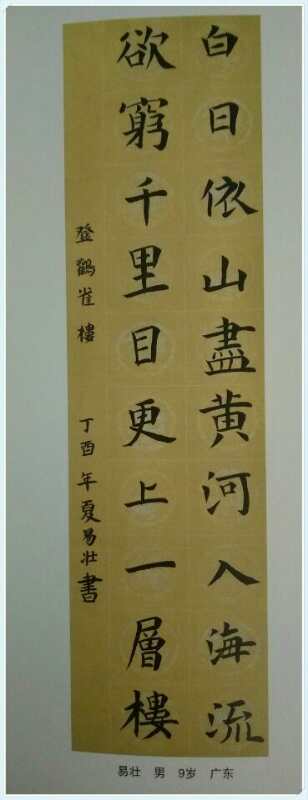 白日依山盡黄河入海流
欲窮千里目更上一層樓
登鶴雀樓 丁酉年夏易壮書
易壮 男 9岁 广东